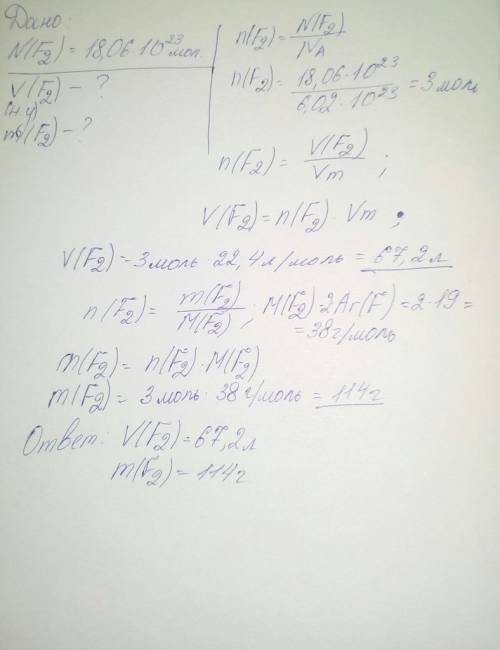 Дано:
N(F₂) = 18,06·10²³ мол.
V(F₂) - ?
(н.у)
m(F₂) - ?
n(F₂) = N(F₂)/NA
n(F₂) = 18,06·10²³/6,02·10²³ = 3 моль
n(F₂) = V(F₂)/Vm ;
V(F₂) = n(F₂) · Vm ;
V(F₂) = 3 моль · 22,4 л/моль = 67,2 л
n(F₂) = m(F₂)/M(F₂) ; M(F₂) = 2Ar(F) = 2·19 =
= 38г/моль
m(F₂) = n(F₂)·M(F₂)
m(F₂) = 3 моль · 38 г/моль = 114 г
Ответ: V(F₂) = 67,2л
m(F₂) = 114г